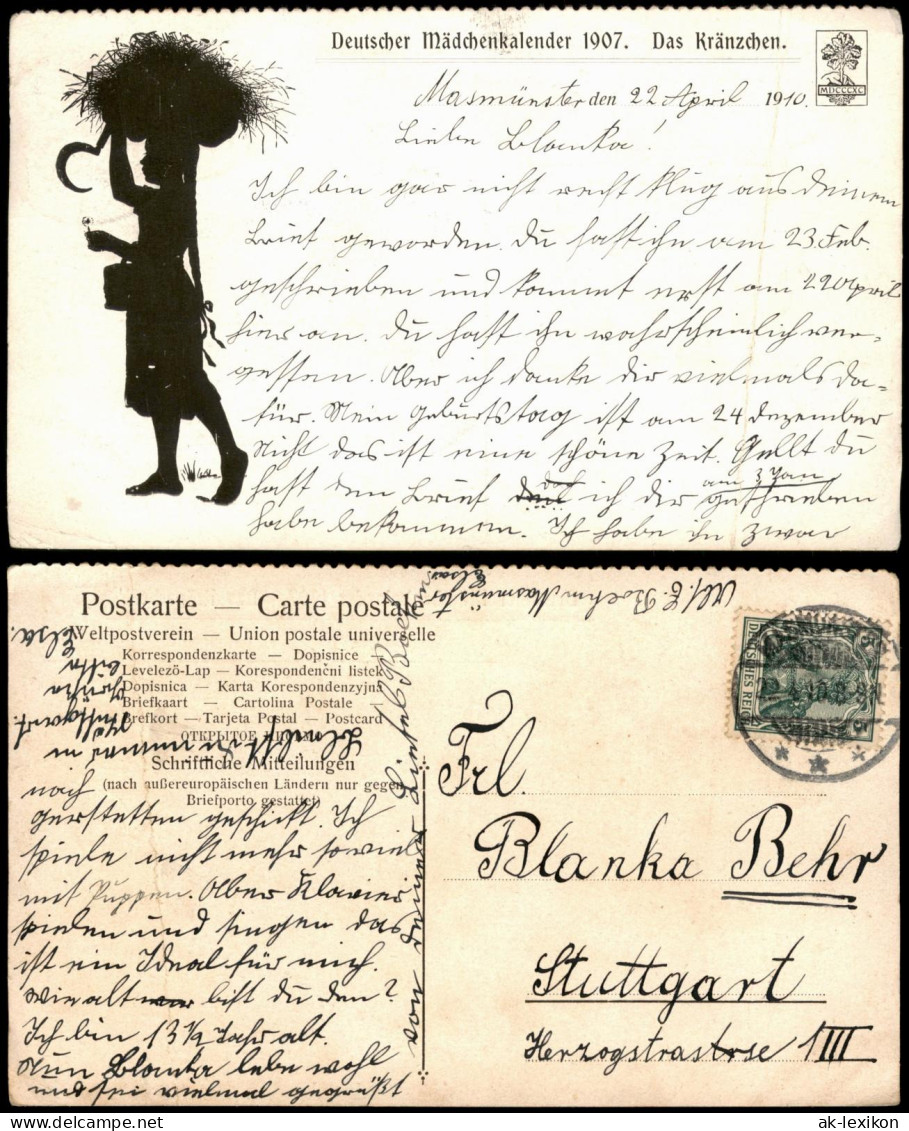 Deutscher Mädchenkalender 1907. Das Kränzchen.
MDCCCXC
Masmünster den 22 April 1910.
Liebe Blanka!
Ich bin gar nicht recht klug aus deinem
Brief geworden. Du hast ihn am 23. Feb.
geschrieben und kommt erst am 22 April
hier an. Du hast ihn wahrscheinlich ver-
gessen. Aber ich danke dir vielmals da-
für. Mein Geburtstag ist am 24 Dezember
Nicht das ist eine schöne Zeit. Gellt du
hast den Brief den ich dir am 3 Jan geschrieben
habe bekommen. Ich habe ihn zwar
Postkarte — Carte postale
Weltpostverein — Union postale universelle
Korrespondenzkarte — Dopisnice —
Levelező-Lap — Korespondenční listek
Dopisnica — Karta Korespondenzyjna
Briefkaart — Cartolina Postale
Brefkort — Tarjeta Postal — Postcard
Schriftliche Mitteilungen
(nach außereuropäischen Ländern nur gegen
Briefporto gestattet)
nach
gerstetten geschickt. Ich
spiele nicht mehr so viel
mit Puppen. Aber Klavier
spielen und singen das
ist ein Ideal für mich.
Wie alt bist du den?
Ich bin 13 1/2 Jahr alt.
Nun Blanka lebe wohl
und sei vielmal gegrüßt
von deiner
Masmünster
Elsas
DEUTSCHES REICH
Frl.
Blanka Behr
Stuttgart
Herzogstrasse 1 III
ak-lexikon